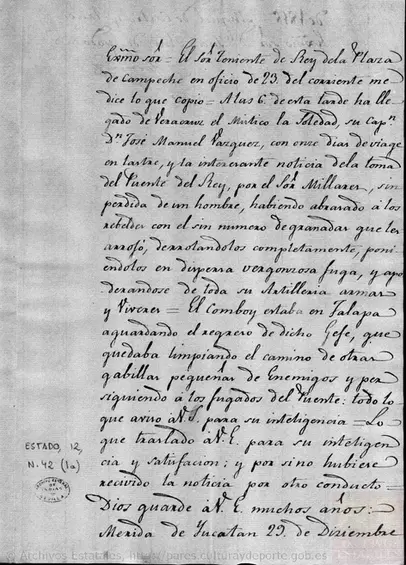 Exmõ sõr = El Sõr Teniente de Rey dela Plaza
de Campeche en oficio de 23. del corriente me
dice lo que copio = A las 6. de esta tarde ha lle
gado de Veracruz el Mistico la Soledad, su Capn.
Dn. José Manuel Vazquez, con once dias de viage
en lastre, y la interezante noticia dela toma
del Puente del Rey, por el Sõr Millares, sin
perdida de un hombre, habiendo abrazado á los
rebeldes con el sin numero de granadas que les
arrojó, derrotandolos completamente, poni
endolos en dispersa vergonzosa fuga, y apo
derandose de toda su Artilleria armas
y Viveres = El Comboy estaba en Jalapa
aguardando el regreso de dicho Gefe, que
quedaba limpiando el camino de otras
gabillas pequeñas de Enemigos y per
siguiendo á los fugados del Puente: todo lo
que aviso á V.S. para su inteligencia = Lo
que traslado á V.E. para su inteligen
cia y satisfacion; y por si no hubiere
recivido la noticia por otro conducto =
Dios guarde á V.E. muchos años:
Merida de Yucatan 29. de Diziembre
ESTADO, 12,
N. 42 (1a)
© Archivos Estatales, https://pares.culturaydeporte.gob.es